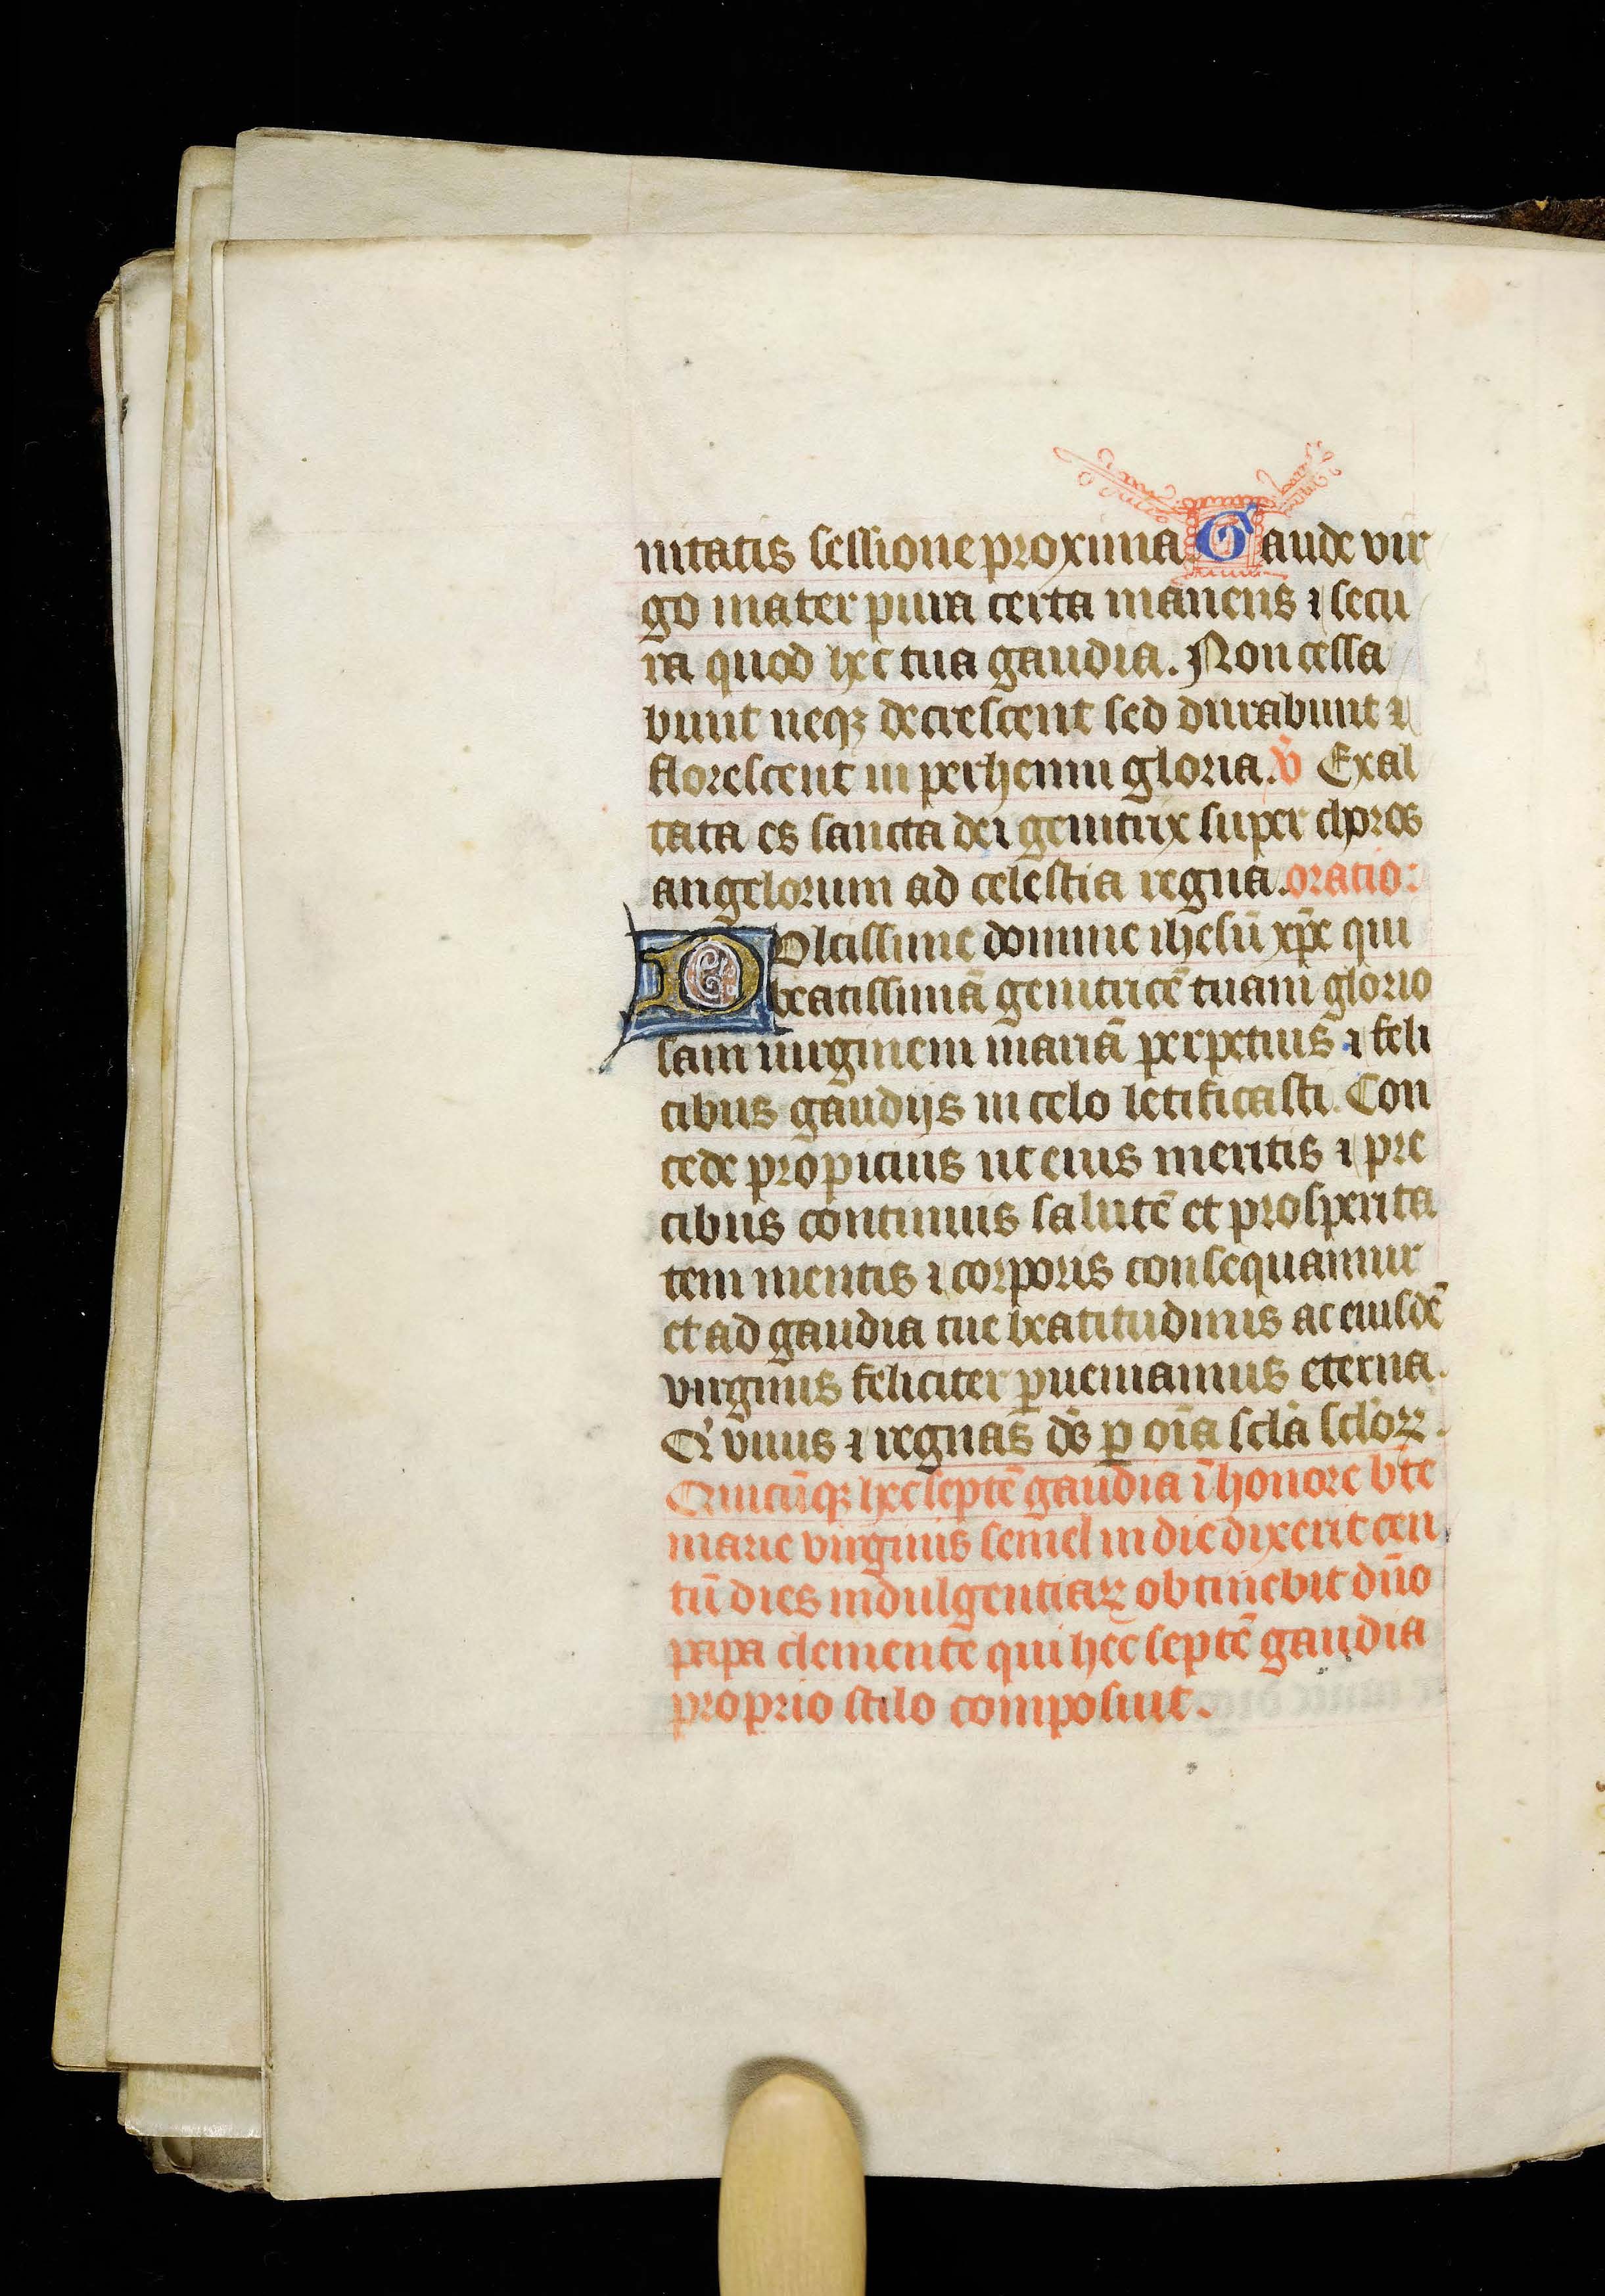 nitatis sessione proxima Gaude vir
go mater pura certa manens ⁊ secu
ra quod hec tua gaudia. Non cessa
bunt neqꝫ decrescent sed durabunt ⁊
florescent in perhenni gloria. v̄ Exal
tata es sancta dei genitrix super choros
angelorum ad celestia regna. oratio:
Dolcissime domine ihesū xp̄e qui
beatissimā genitricē tuam glorio
sam uirginem mariā perpetuis ⁊ feli
cibus gaudijs in celo letificasti. Con
cede propicius ut eius meritis ⁊ pre
cibus continuis salutē et prosperita
tem mentis ⁊ corporis consequamur
et ad gaudia tue beatitudinis ac eiusdē
virginis feliciter ꝑueniamus eterna.
Qͥ viuis ⁊ regnas ds̄ ꝑ oīa scl̄a scl̄oꝝ.
Quicūqꝫ hec septē gaudia ī honore bt̄e
marie virginis semel in die dixerit cen
tū dies indulgentiaꝝ obtinebit dn̄o
papa clemente qui hec septē gaudia
proprio stilo composuit.